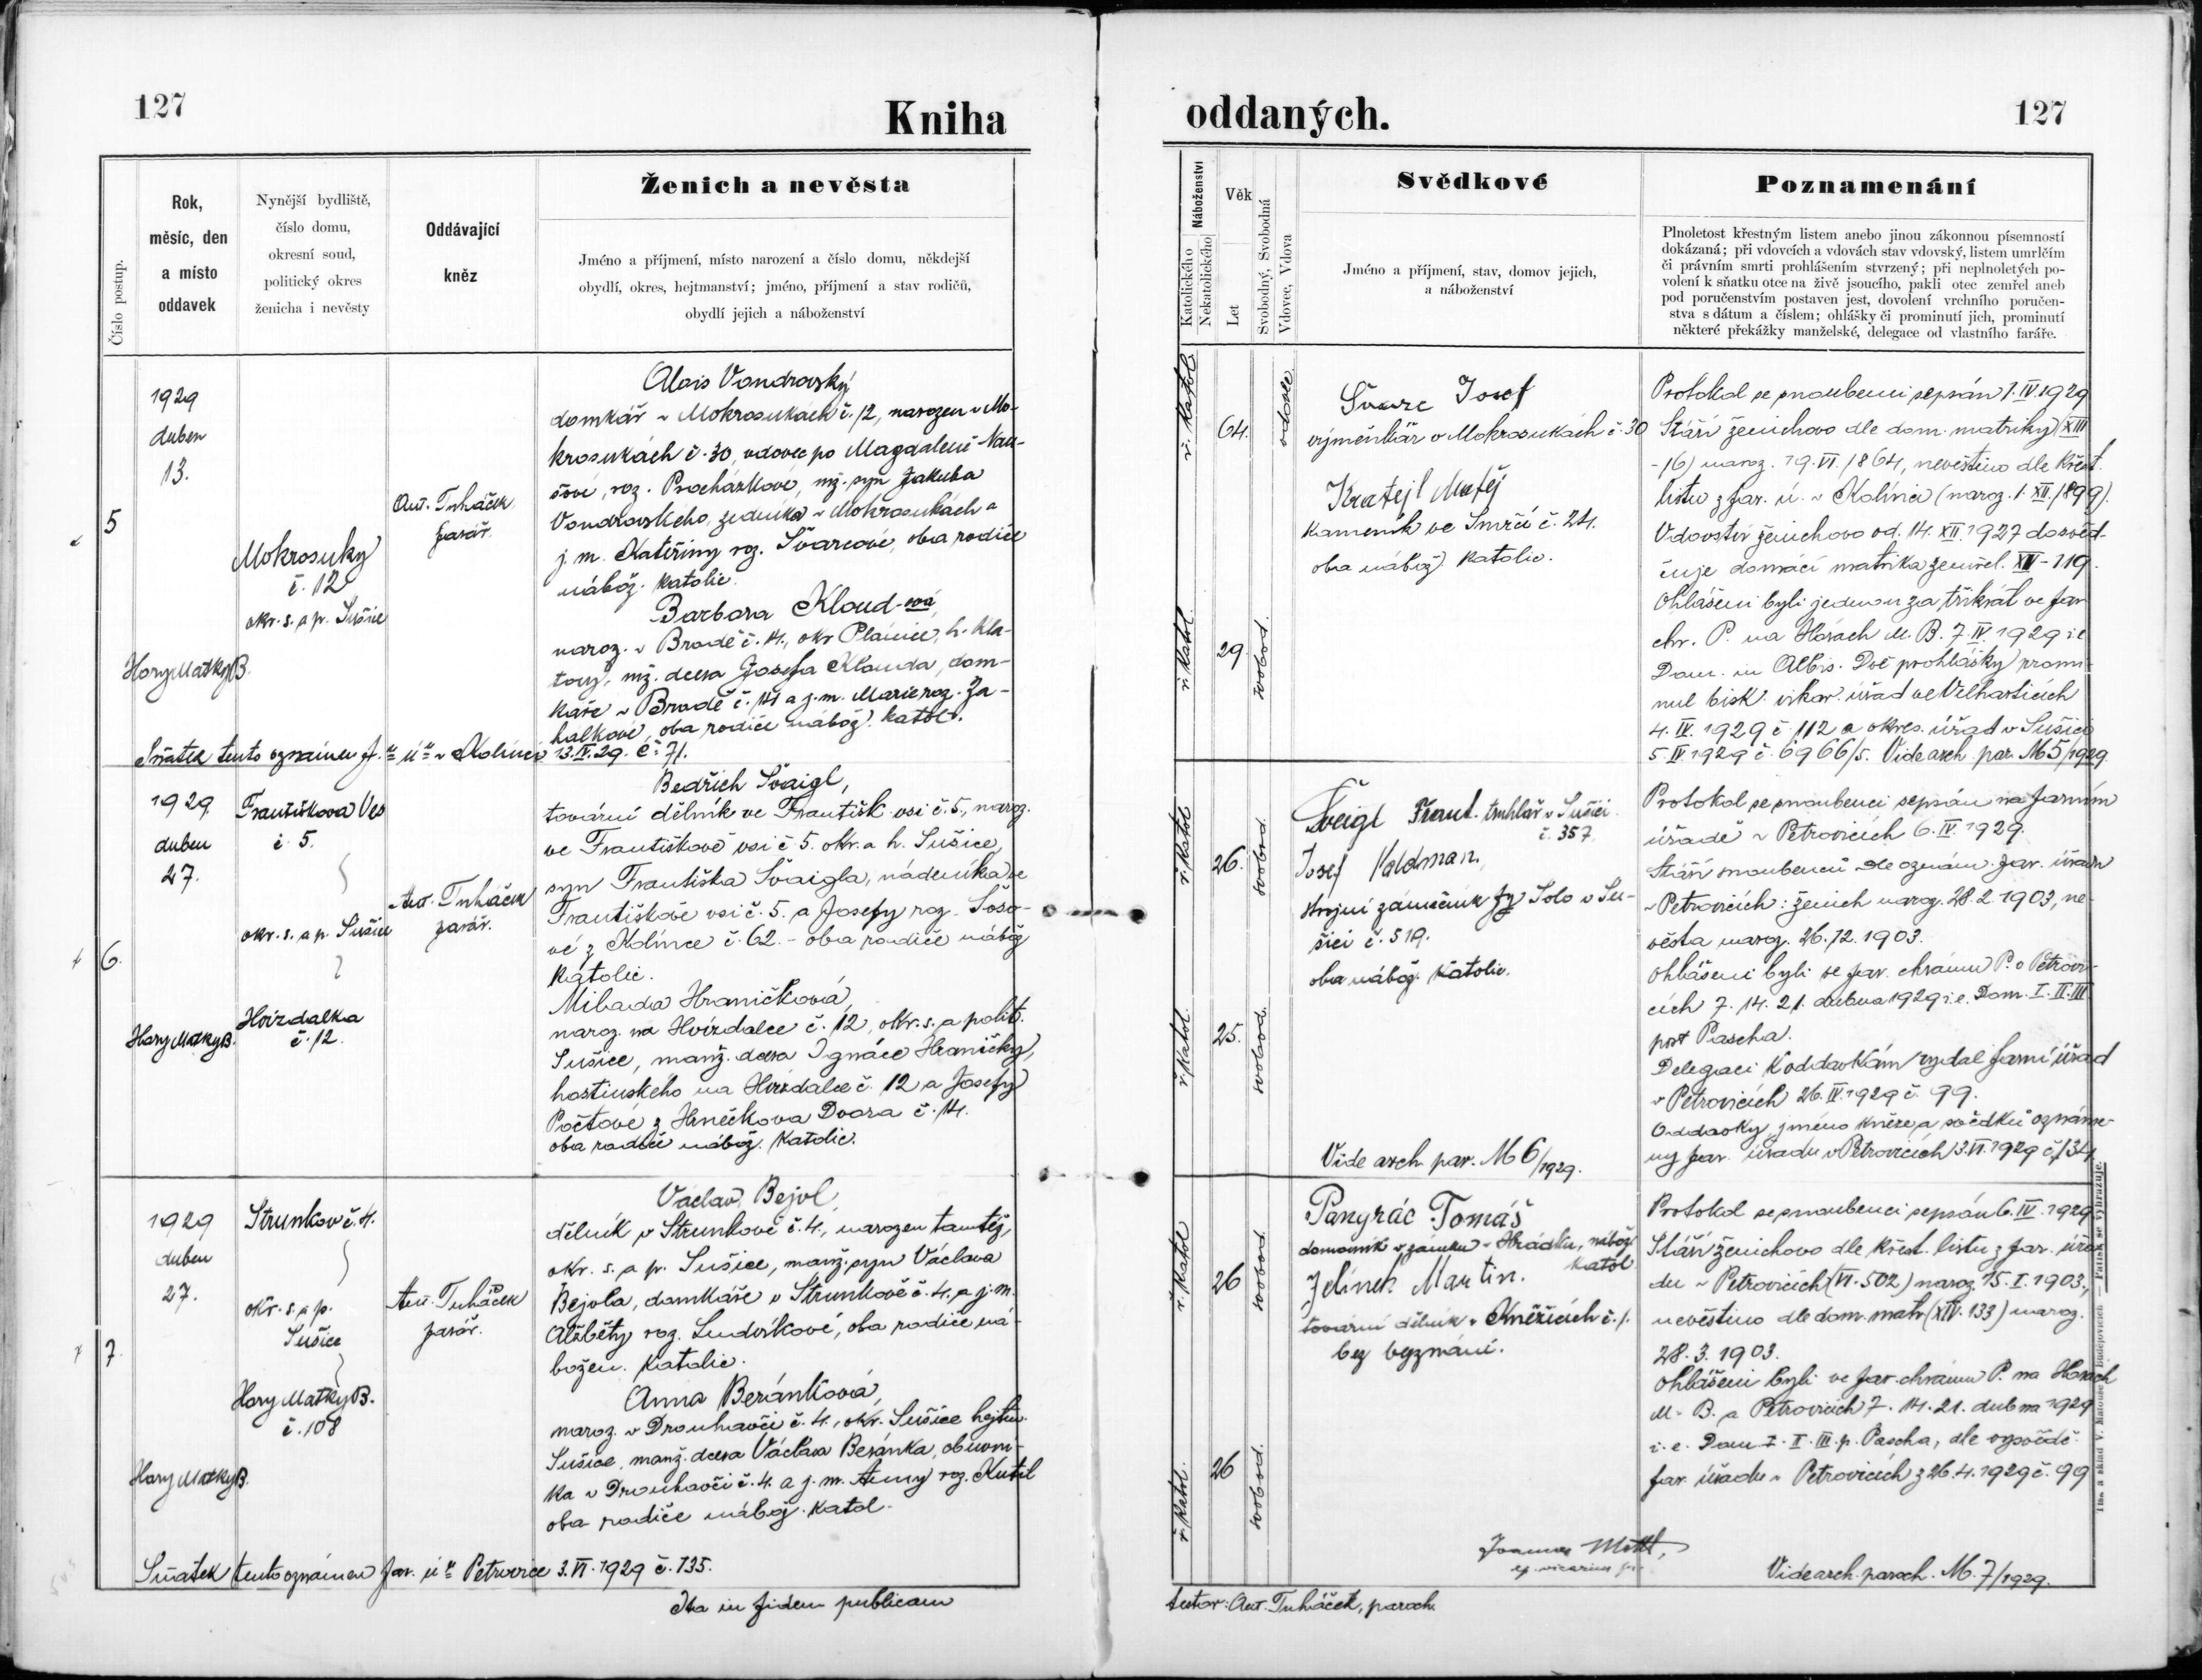 127
Kniha
Číslo postup.
Rok,
měsíc, den
a místo
oddavek
Nynější bydliště,
číslo domu,
okresní soud,
politický okres
ženicha i nevěsty
Oddávající
kněz
Ženich a nevěsta
Jméno a příjmení, místo narození a číslo domu, někdejší
obydlí, okres, hejtmanství; jméno, příjmení a stav rodičů,
obydlí jejich a náboženství
5
1929
duben
13.
Hory Matky B.
Mokrosuky
č. 12
okr. s. a p. Sušice
Ant. Tuháček
farář.
Alois Vondrovský
domkář v Mokrosukách č. 12, narozen v Mo-
krosukách č. 30, vdovec po Magdaleně
roz. Procházkové, mž. syn Jakuba
Vondrovského, zedníka v Mokrosukách a
j. m. Kateřiny roz. Švarcové, oba rodiče
nábož. katolic.
Barbora Kloud-ová,
naroz. v Bradě č. 14., okr Plánice, h. Kla-
tovy, mž. dcera Josefa Klouda, dom-
káře v Bradě č. 14 a j. m. Marie roz. Za-
halkové, oba rodiče nábož. katol.
Sňatek tento oznámen f. ú v Kolinci 13.IV.29. č. 71.
6.
1929.
duben
27.
Hory Matky B.
Františkova Ves
č 5.
okr. s. a p. Sušice
Hvízdalka
č. 12.
Ant. Tuháček
farář.
Bedřich Švaigl,
tovární dělník ve Františk. vsi č. 5., naroz.
ve Františkově vsi č 5. okr. a h. Sušice,
syn Františka Švaigla, nádeníka ve
Františkově vsi č. 5. a Josefy roz. Šoso-
vé z Kolince č. 62. - oba rodiče nábož
katolic.
Milada Hraničková,
naroz. na Hvízdalce č. 12, okr. s. a polit.
Sušice, manž. dcera Ignáce Hraničky,
hostinského na Hvízdalce č. 12 a Josefy
Počtové z Hněčkova Dvora č. 14.
oba rodiče nábož. katolic.
7.
1929
duben
27.
Hory Matky B.
Strunkov č. 4.
okr. s. a p.
Sušice
Hory Matky B.
č. 108
Ant. Tuháček
farář.
Václav Bejvl,
dělník v Strunkově č. 4., narozen tamtéž,
okr. s. a p. Sušice, manž. syn Václava
Bejvla, domkáře v Strunkově č. 4. a j. m.
Alžběty roz. Ludvíkové, oba rodiče ná-
božen. katolic.
Anna Beránková,
naroz. v Drouhavči č. 4., okr. Sušice hejtm.
Sušice, manž. dcera Václava Beránka, obuvní-
ka v Drouhavči č. 4. a j. m. Anny roz. Kutil
oba rodiče nábož. katol.
Sňatek tento oznámen far. ú Petrovice 3.VI.1929 č. 135.
Ita in fidem publicam
oddaných.
127
Náboženství
Katolického
Nekatolického
Věk
Let
Svobodný, Svobodná
Vdovec, Vdova
Svědkové
Jméno a příjmení, stav, domov jejich,
a náboženství
Poznamenání
Plnoletost křestným listem anebo jinou zákonnou písemností
dokázaná; při vdovcích a vdovách stav vdovský, listem umrlčím
či právním smrti prohlášením stvrzený; při neplnoletých po-
volení k sňatku otce na živě jsoucího, pakli otec zemřel aneb
pod poručenstvím postaven jest, dovolení vrchního poručen-
stva s dátum a číslem; ohlášky či prominutí jich, prominutí
některé překážky manželské, delegace od vlastního faráře.
ř. katol.
64.
vdovec
ř. katol.
29.
svobod.
Švarc Josef
výměnkář v Mokrosukách č. 30
Kratejl Matěj
kameník ve Smrčí č. 24.
oba nábož. katolic.
Protokol se snoubenci sepsán 1.IV.1929
Stáří ženichovo dle dom. matriky (XIII
-16) naroz. 19.VI.1864, nevěstino dle křest.
listu z far. ú. v Kolinci (naroz. 1.XII.1899).
Vdovství ženichovo od. 14.XII.1927 dosvěd-
čuje domácí matrika zemřel. XIV-119.
Ohlášeni byli jednou za třikrát ve far.
chr. P. na Horách M. B. 7.IV.1929 i. e
Dom. in Albis. Dvě prohlášky promi-
nul bisk. vikar. úřad ve Velharticích
4.IV.1929 č 112 a okres. úřad v Sušici
5.IV.1929 č. 6966/5. Vide arch. par. M5/1929
ř. katol
26.
svobod.
ř. katol.
25.
svobod.
Švaigl Frant. truhlář v Sušici
č. 357.
Josef Valdman,
strojní zámečník fy Solo v Su-
šici č. 519.
oba nábož. katolic.
Vide arch. par. M 6/1929.
Protokol se snoubenci sepsán na farním
úřadě v Petrovicích 6.IV.1929.
Stáří snoubenců dle oznám. far. úřadu
v Petrovicích: ženich naroz. 28.2.1903, ne-
věsta naroz. 26.12.1903.
Ohlášeni byli ve far. chrámu P. v Petrovi-
cích 7. 14. 21. dubna 1929 i. e. Dom. I. II. III.
post Pascha.
Delegaci k oddavkám vydal farní úřad
v Petrovicích 26.IV.1929 č. 99.
Oddavky, jméno kněze a svědků oznáme-
ny far. úřadu v Petrovicích 3.VI.1929 č. 134.
ř. katol
26
svobod.
ř. katol.
26
svobod.
Pangrác Tomáš
domovník v zámku v Hrádku, nábož.
katol
Jelínek Martin.
tovární dělník v Kněžicích č. 1.
bez vyznání.
Protokol se snoubenci sepsán 6.IV.1929
Stáří ženichovo dle křest. listu z far. úřa-
du v Petrovicích (VI.502) naroz. 15.I.1903,
nevěstino dle dom. matr. (XIV.133) naroz.
28.3.1903.
Ohlášeni byli ve far. chrámu P. na Horách
M. B. a Petrovicích 7. 14. 21. dubna 1929
i. e. Dom I. II. III. p. Pascha, dle vysvědč.
far. úřadu v Petrovicích z 26.4.1929 č. 99
Vide arch. paroch. M. 7/1929.
testor: Ant. Tuháček, paroch.